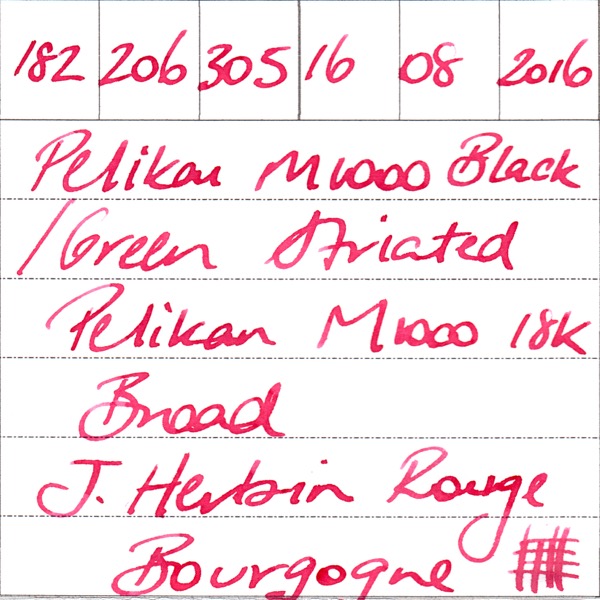 182 206 305 16 08 2016
Pelikan M1000 Black
/Green Striated
Pelikan M1000 18K
Broad
J. Herbin Rouge
Bourgogne